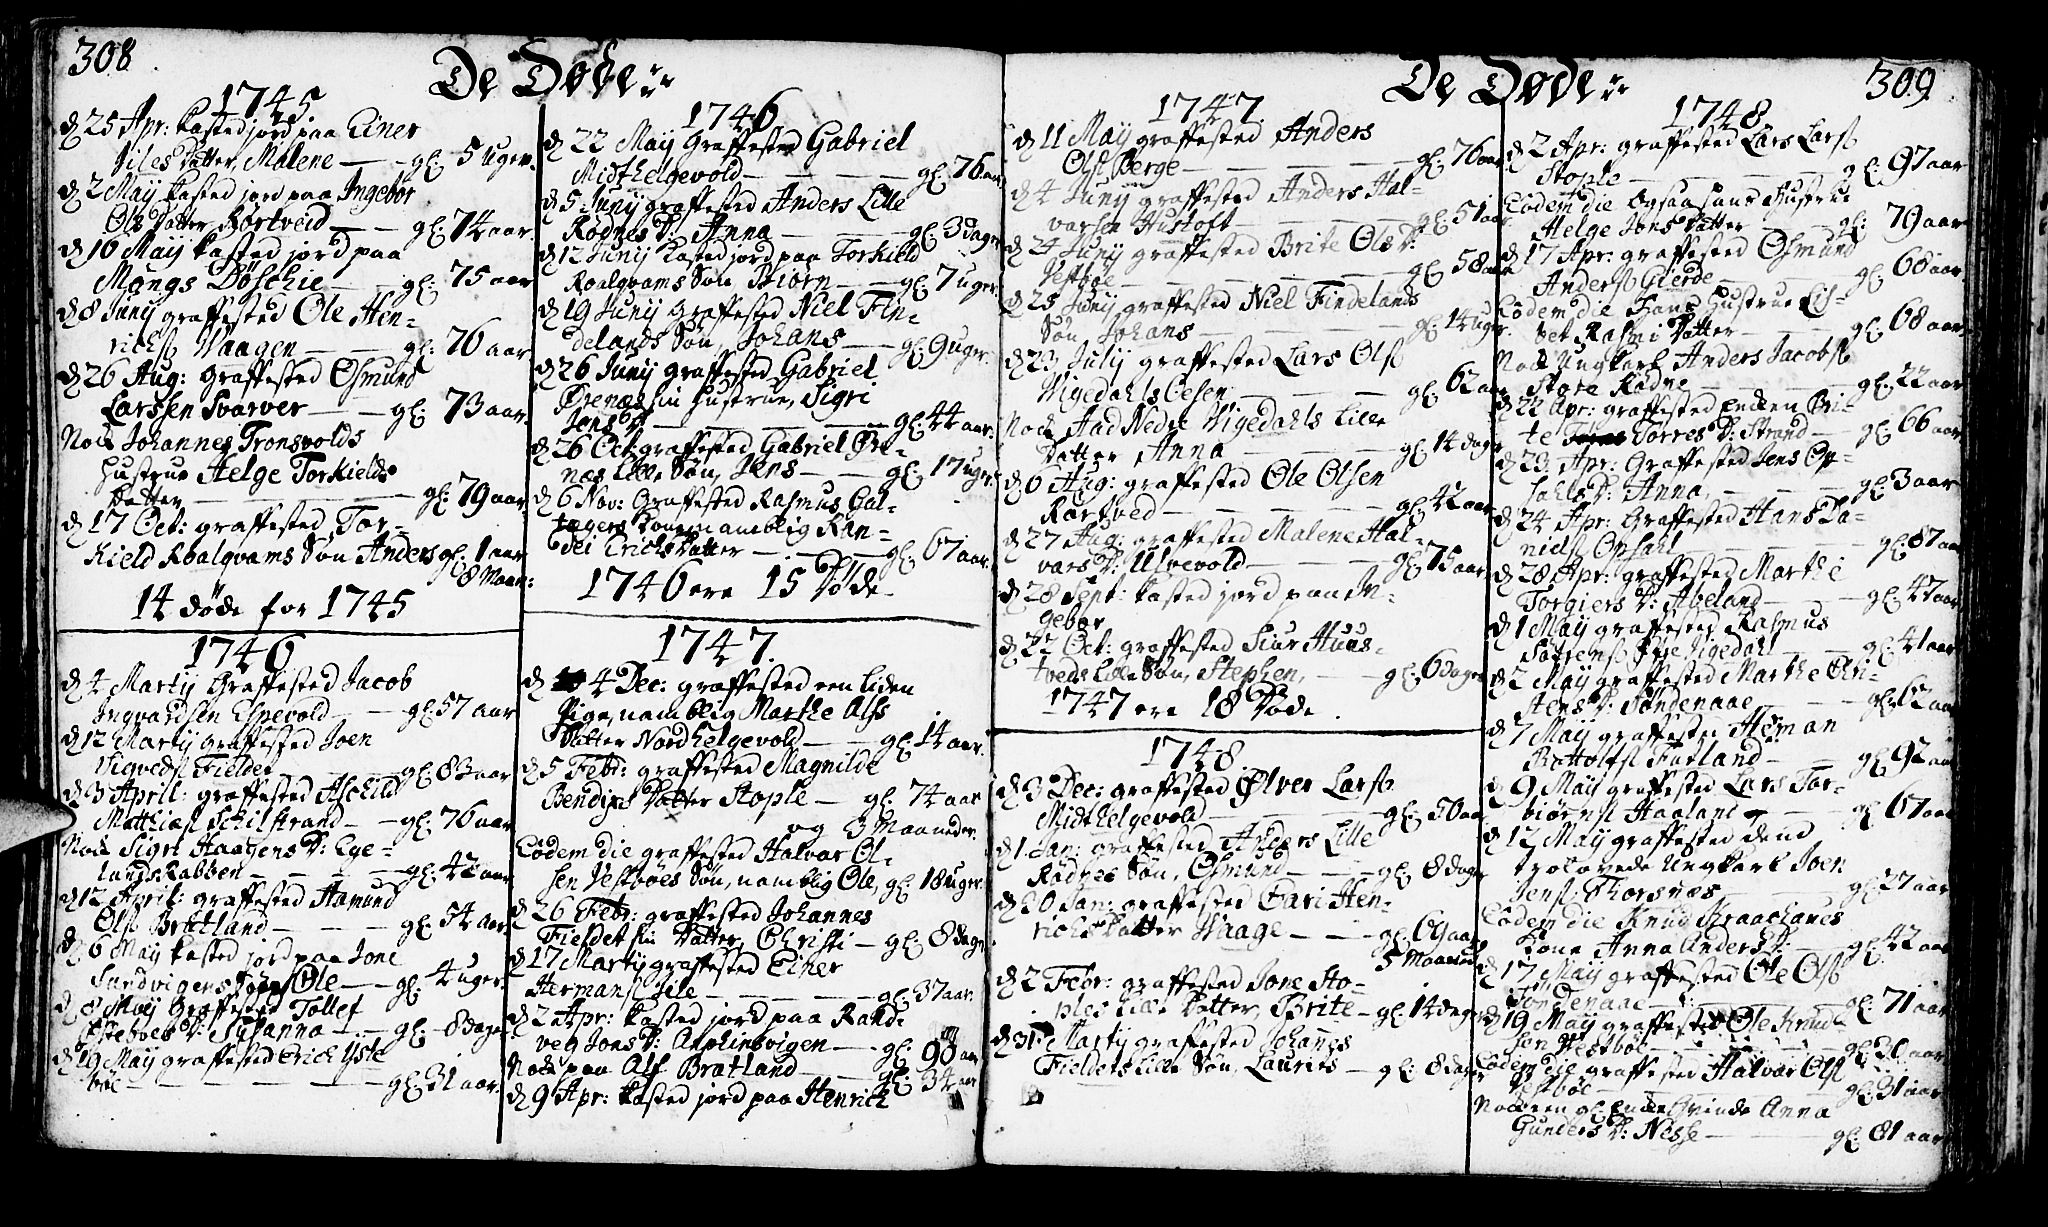 308
De Døde
1745.
d 25 Apr: kasted jord paa Einer
Niles Datter, Malene — gl: 5 uger.
d 2 Maij kasted jord paa Ingebor
Ols Datter Rørtveid — gl: 74 aar.
d 16 Maij kasted jord paa
Mangs Døschie — gl: 75 aar
d 8 Junij graffested Ole Hen-
richs: Waagen — gl: 76 aar
d 26 Aug: Graffested Osmund
Larssen Svarver — gl: 73 aar.
Nock Johannes Tronsvolds
Hustrue Helge Torkields
Datter — gl: 79 aar
d 17 Oct: graffested Tor-
kield Roalqvams Søn Anders gl: 1 aar
8 Maan:
14 døde for 1745
1746
d 4 Martij Graffested Jacob
Ingvardsen Espevold — gl: 57 aar
d 12 Martij graffested Joen
Sigveds: Fieldet — gl: 83 aar
d 3 Aprill: graffested Aschild
Matthias: Schilstrand — gl: 76 aar
Nock Sigri Haagens D: Ege-
lands Rabben — gl: 42 aar
d 12 April: graffested Hamund
Ols: Bratland — gl: 54 aar
d 6 Maij kasted jord paa Jone
Sandvigens Søn, Ole — gl: 4 uger.
d 8 Maij Graffested Tollef
Østebøes D: Susanna — gl: 8 dage
d 19 Maij graffested Erich Yste
bøe — gl: 31 aar.
1746
d 22 Maij Graffested Gabriel
Midthelgevold — gl: 76 aar
d 5 Junij graffested Anders Lille
Rødnes D: Anna — gl: 3 dage
d 12 Junij kasted jord paa Torkield
Roalqvams Søn Biørn — gl: 7 uger.
d 19 Junij Graffested Niel Fin-
delands Søn, Johans — gl: 9 uger.
d 26 Junij graffested Gabriel
Ørenæs sin Hustrue, Sigri
Jons D: — gl: 44 aar.
d 26 Oct: graffested Gabriel Øre-
næs lille Søn, Jens — gl: 17 uger.
d 6 Nov: Graffested Rasmus Gal-
tagers Kone namblig Ran-
dei Erichs Datter — gl: 67 aar.
1746 ere 15 Døde.
1747.
d 4 Dec: graffested een liden
Pige, namblig Marthe Alfs
Datter Nordhelgevold — gl: 14 aar.
d 5 Febr: graffested Magnilde
Bendixs Datter Stople — gl: 74 aar
og 3 Maaneder.
Eodem die graffested Halvar Ol-
sen Vestbøes Søn, namblig Ole, gl: 18 uger.
d 26 Febr: graffested Johannes
Fieldet sin Datter, Christi — gl: 8 dage
d 17 Martij graffested Einer
Hermans: Lile — gl: 37 aar.
d 2 Apr: kasted jord paa Rande
veg Jons D: Aplindvigen — gl: 90 aar
Nock paa Alf Bratland — gl: 34 aar
d 9 Apr: kasted jord paa Henrich
De Døde
309
1747
d 11 Maij graffested Anders
Ols: Berge — gl: 76 aar
d 4 Junij graffested Anders Hal-
varsen Hustoft — gl: 51 aar
d 24 Junij graffested Brite Ols D:
Vestbøe — gl: 58 aar
d 25 Junij graffested Niel Findelands
Søn Johans — gl: 14 uger.
d 23 Julij graffested Lars Ols:
Wigedahls Eesen — gl: 62 aar
Nock Aad Nedre Wigedahls Lille
Datter Anna — gl: 14 dage
d 6 Aug: graffested Ole Olsen
Rørtved — gl: 42 aar.
d 27 Aug: graffested Malene Hal-
vars D: Ulvevold — gl: 75 aar
d 28 Sept: kasted jord paa In-
gebor
d 22 Oct: graffested Siur Huus-
tveds lille Søn, Stephen, — gl: 6 dage
1747 ere 18 Døde.
1748.
d 3 Dec: graffested Ølver Lars:
Midthelgevold — gl: 50 aar
d 1 Jan: graffested Anders Lille
Rødnes Søn, Osmund — gl: 8 dage
d 20 Jan: graffested Bari Hen-
richs Datter Waage — gl: 69 aar
5 Maaned
d 2 Febr: graffested Jone Sto-
ples lille Datter, Brite — gl: 14 dage
d 31 Martij graffested Johanes
Fieldets lille Søn, Laurits — gl: 8 dage
1748
d 2 Apr: graffested Lars Lars:
Stople — gl: 97 aar
Eodem die ogsaa hans Hustrue
Helge Jons Datter — gl: 79 aar
d 17 Apr: graffested Osmund
Anders: Gierde — gl: 68 aar.
Eodem die Hans Hustrue Lis-
bet Rasmi Datter — gl: 68 aar.
Nock Ungkarl Anders Jacobs:
Store Rødne — gl: 22 aar
d 22 Apr: graffested Enken Bri-
te Torres D: Strand — gl: 66 aar
d 23 Apr: Graffested Jens Op-
sahls D: Anna — gl: 3 aar
d 24 Apr: Graffested Hans Da-
niels: Opsahl — gl: 87 aar
d 28 Apr: graffested Marthe
Torgiers D: Abeland — gl: 47 aar
d 1 Maij graffested Rasmus
Sørrens: Øvre Vigedahl — gl: 41 aar
d 2 Maij graffested Marthe Chri-
stens D: Søndenaae — gl: 62 aar
d 7 Maij graffested Herman
Bottolfs: Fatland — gl: 92 aar
d 9 Maij graffested Lars Tor-
biørns: Haaland — gl: 67 aar
d 12 Maij graffested dend
trolovede Ungkarl Joen
Jens: Thorsnæs — gl: 27 aar
Eodem die Knud Kraachanes
Kone Anna Anders D: — gl: 42 aar
d 17 Maij graffested Ole Ols:
Søndenaae — gl: 71 aar
d 19 Maij graffested Ole Knud-
sen Vestbøe — gl: 30 aar
Eodem die graffested Halvar Ols:
Vestbøe — gl: 31 aar
Nock een gl: Enke Qvinde Anna
Gunders D: Nesse — gl: 81 aar